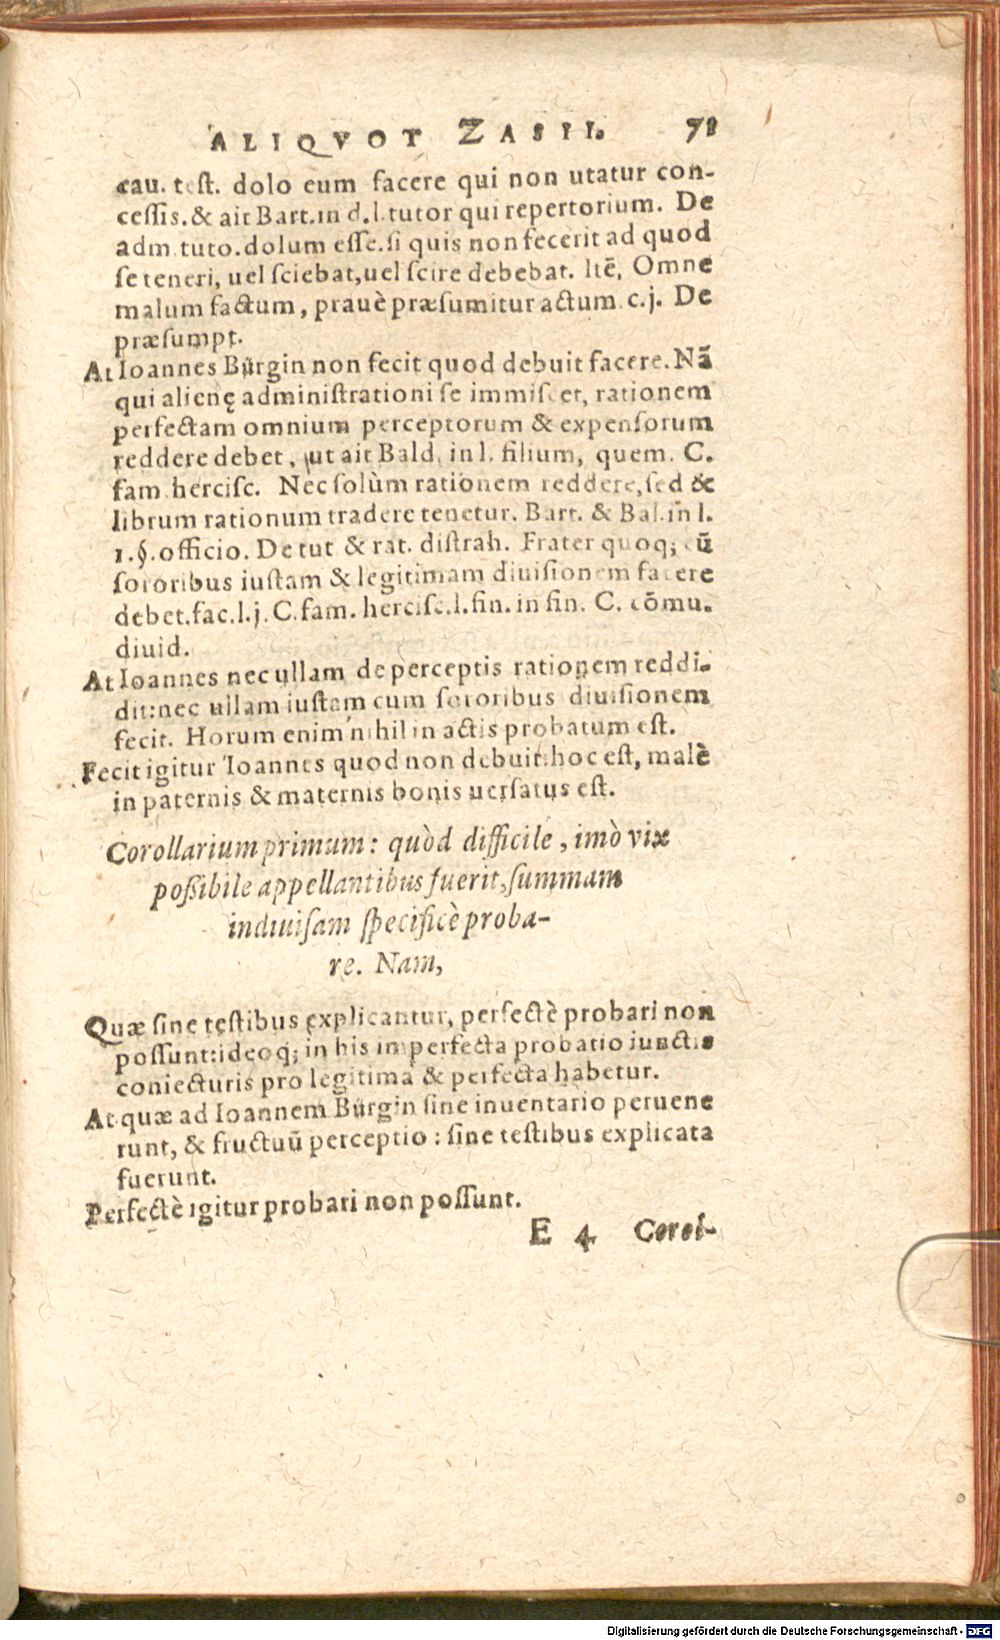 ALIQVOT ZASII. 71
cau. test. dolo eum facere qui non utatur con-
cessis. & ait Bart. in d. l. tutor qui repertorium. De
adm. tuto. dolum esse. si quis non fecerit ad quod
se teneri, uel sciebat, uel scire debebat. Itē, Omne
malum factum, prauè præsumitur actum. c. j. De
præsumpt.
At Ioannes Bürgin non fecit quod debuit facere. Nā
qui alienę administrationi se immiscet, rationem
perfectam omnium perceptorum & expensorum
reddere debet, ut ait Bald. in l. filium, quem. C.
fam. hercisc. Nec solùm rationem reddere, sed &
librum rationum tradere tenetur. Bart. & Bal. in l.
1. §. officio. De tut & rat. distrah. Frater quoq; cū
sororibus iustam & legitimam diuisionem facere
debet. fac. l. j. C. fam. hercisc. l. fin. in fin. C. cōmu.
diuid.
At Ioannes nec ullam de perceptis rationem reddi-
dit: nec ullam iustam cum sororibus diuisionem
fecit. Horum enim nihil in actis probatum est.
Fecit igitur Ioannes quod non debuit: hoc est, malè
in paternis & maternis bonis uersatus est.
Corollarium primum: quòd difficile, imò vix
possibile appellantibus fuerit, summam
indiuisam specificè proba-
re. Nam,
Quæ sine testibus explicantur, perfectè probari non
possunt: ideoq; in his imperfecta probatio iunctis
coniecturis pro legitima & perfecta habetur.
At quæ ad Ioannem Bürgin sine inuentario peruene
runt, & fructuū perceptio: sine testibus explicata
fuerunt.
Perfectè igitur probari non possunt.
E 4 Corol-
Digitalisierung gefördert durch die Deutsche Forschungsgemeinschaft - DFG